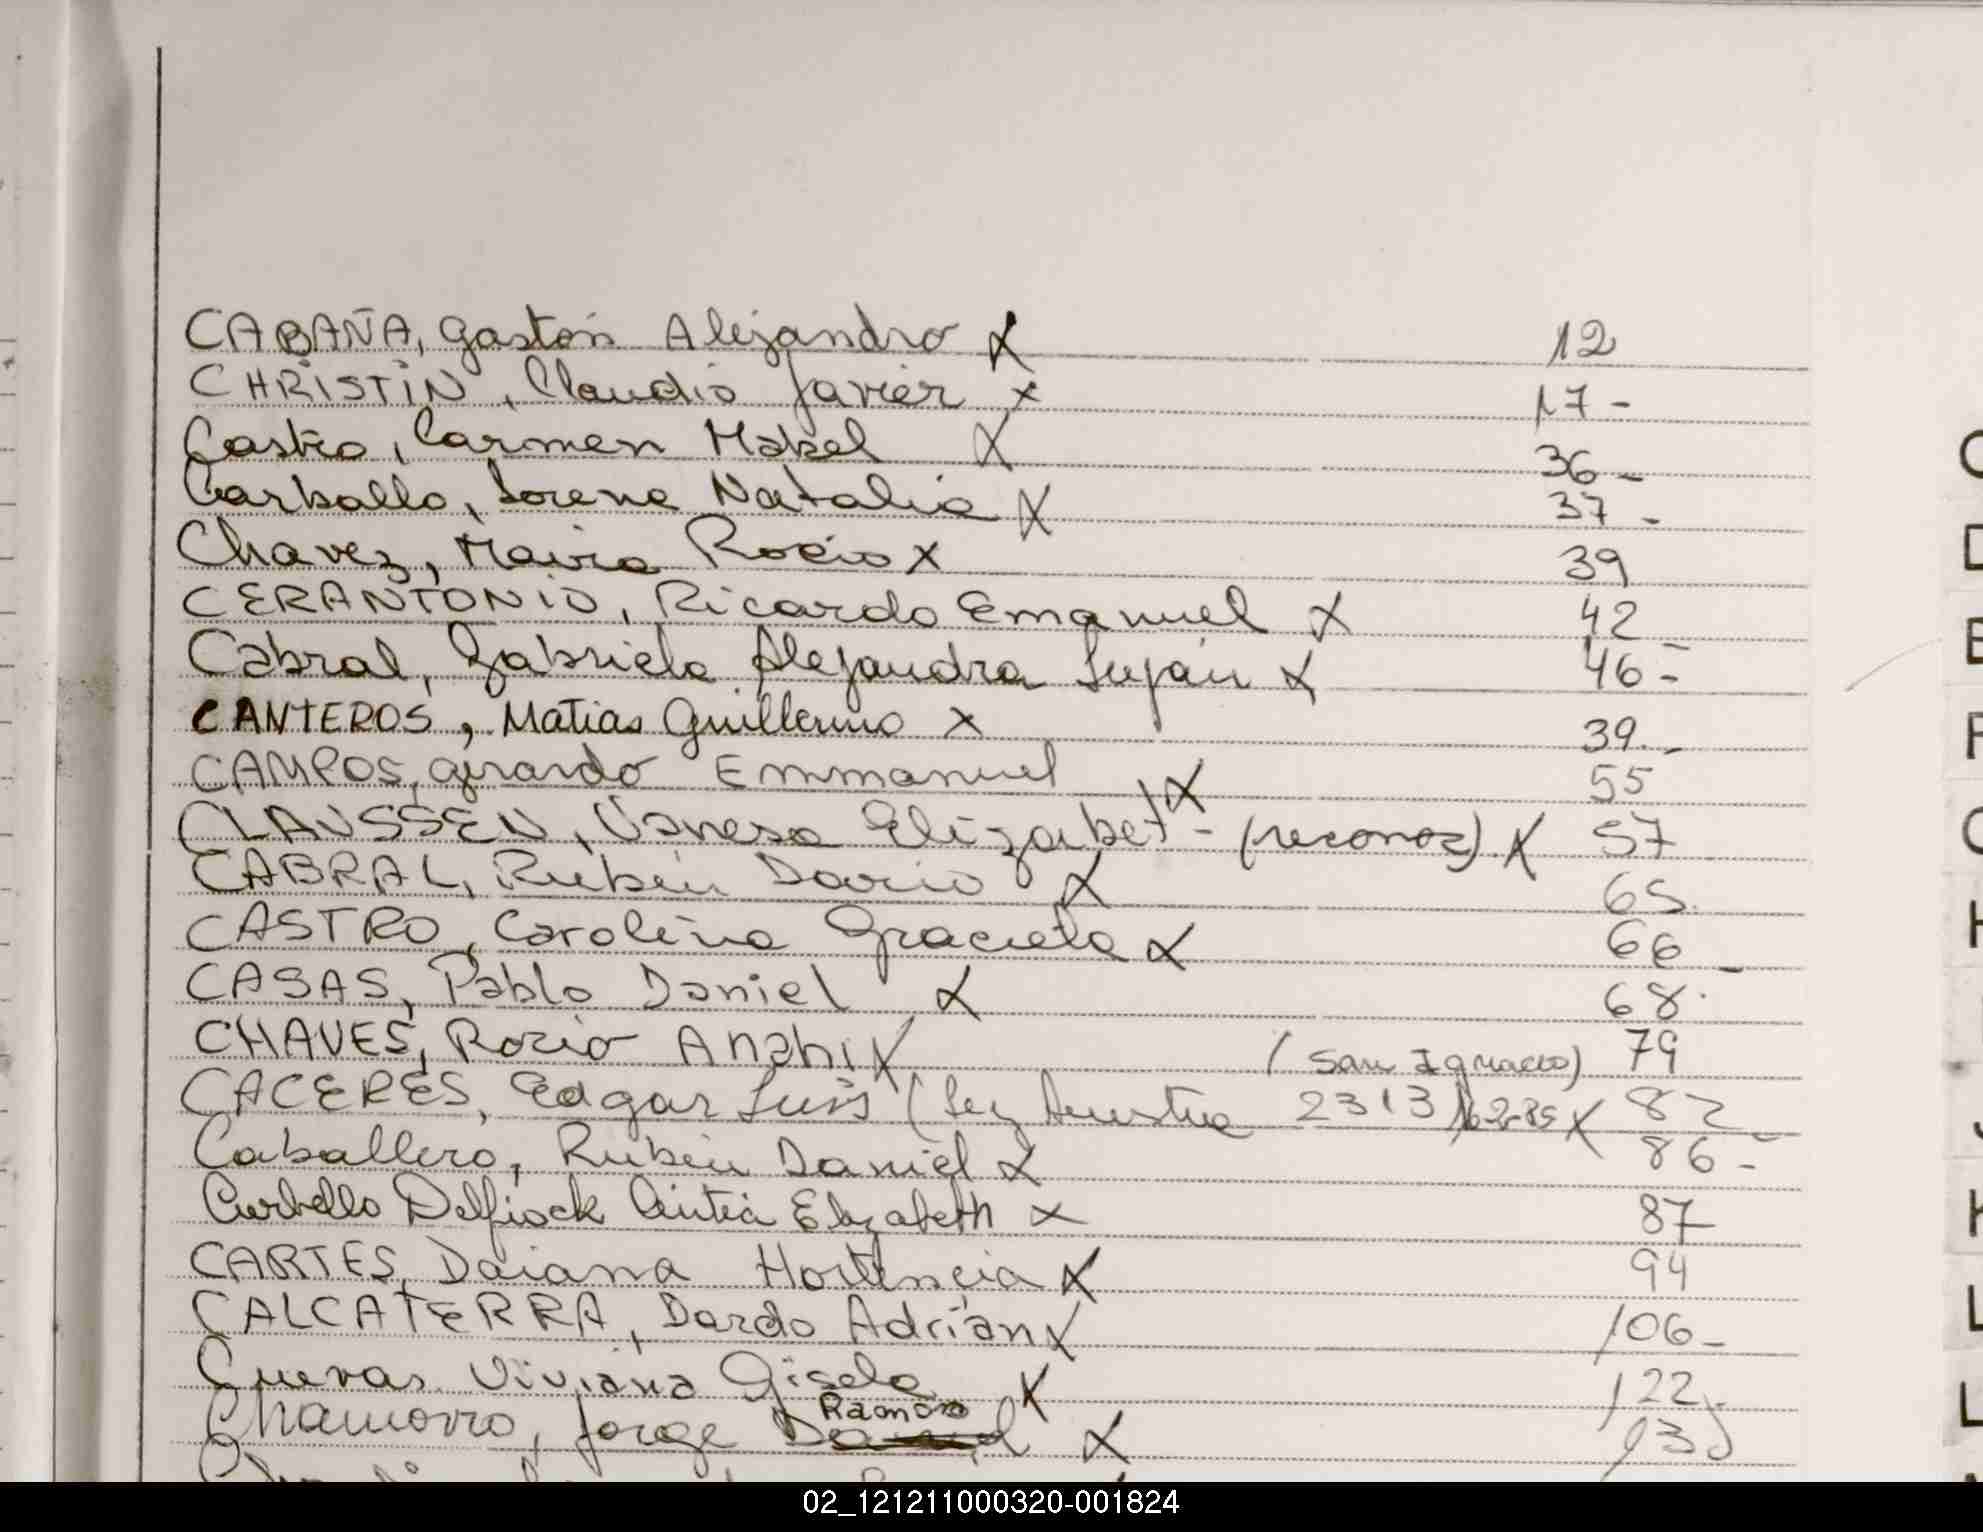 CABAÑA, Gastón Alejandro X 12
CHRISTIN, Claudio Javier x 17 -
Castro, Carmen Mabel X 36 -
Carballo, Lorena Natalia X 37 -
Chavez, Maira Rocio X 39
CERANTONIO, Ricardo Emanuel X 42
Cabral, Gabriela Alejandra Luján X 46 -
CANTEROS, Matias Guillermo X 39 -
CAMPOS, Gerardo Emmanuel X 55
CLAUSSEN, Vanesa Elizabet - (reconoc) X 57
CABRAL, Rubén Dario X 65
CASTRO, Carolina Graciela X 66 -
CASAS, Pablo Daniel X 68
CHAVES, Rozio Anahi X 79
(San Ignacio)
CACERES, Edgar Luis (Ley 2313 X 82
Caballero, Rubén Daniel X 86 -
Curbello Delfiock Cintia Elizabeth X 87
CARTES, Daiana Hortencia X 94
CALCATERRA, Dardo Adrián X 106 -
Cuevas Viviana Gisela X 122
Ramón
Chamorro, Jorge X
02_121211000320-001824